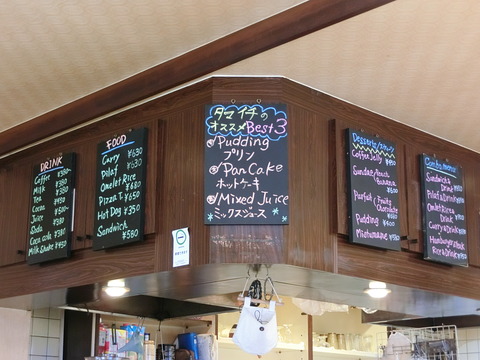 DRINK
Coffee ¥350
Milk ¥350
Tea ¥350
Cocoa
Juice
Soda ¥350
Coca cola ¥380
Milk Shake ¥450
FOOD
Curry ¥630
Pilaf ¥630
Omelet Rice ¥680
Pizza T. ¥650
Hot Dog ¥350
Sandwich ¥580
タマイチの
オススメBest3
Pudding
プリン
PanCake
ホットケーキ
Mixed Juice
ミックスジュース
Desserts
Coffee Jelly
Sundae/Peach
Banana
Parfait/Fruits
Chocolate
Pudding
Mitsumame
Combo menu
Sandwich &
Drink
Pilaf & Drink
Omlet Rice &
Drink
Curry & Drink
Hamburg steak
Rice & Drink